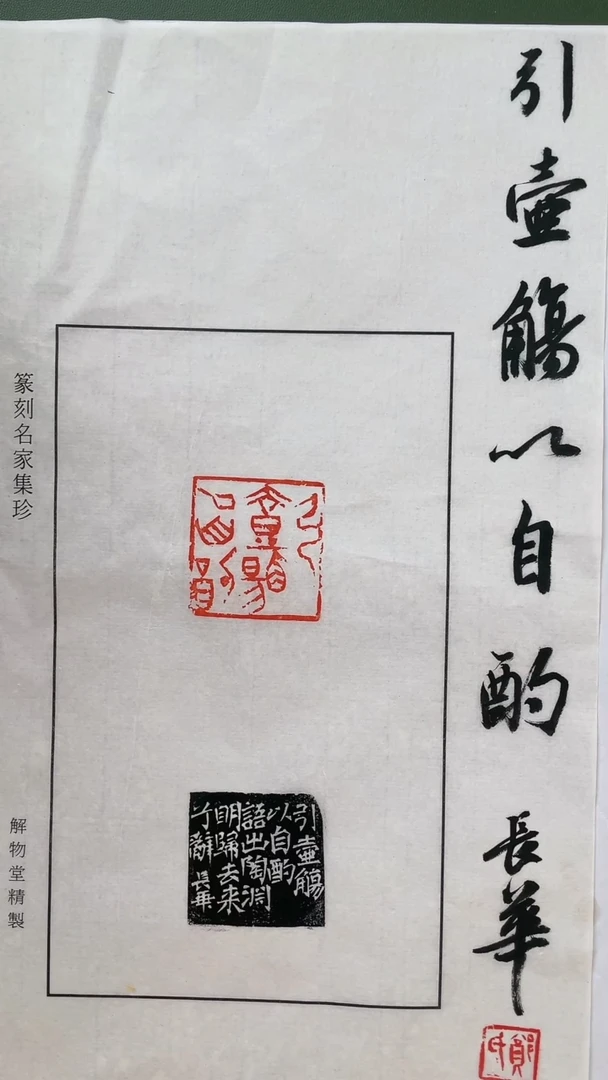 引壺觴以自酌
長華
引
壺觴
以自酌
引壺觴
以自酌
語出陶淵
明歸去来
兮辭 長華
篆刻名家集珍
解物堂精製